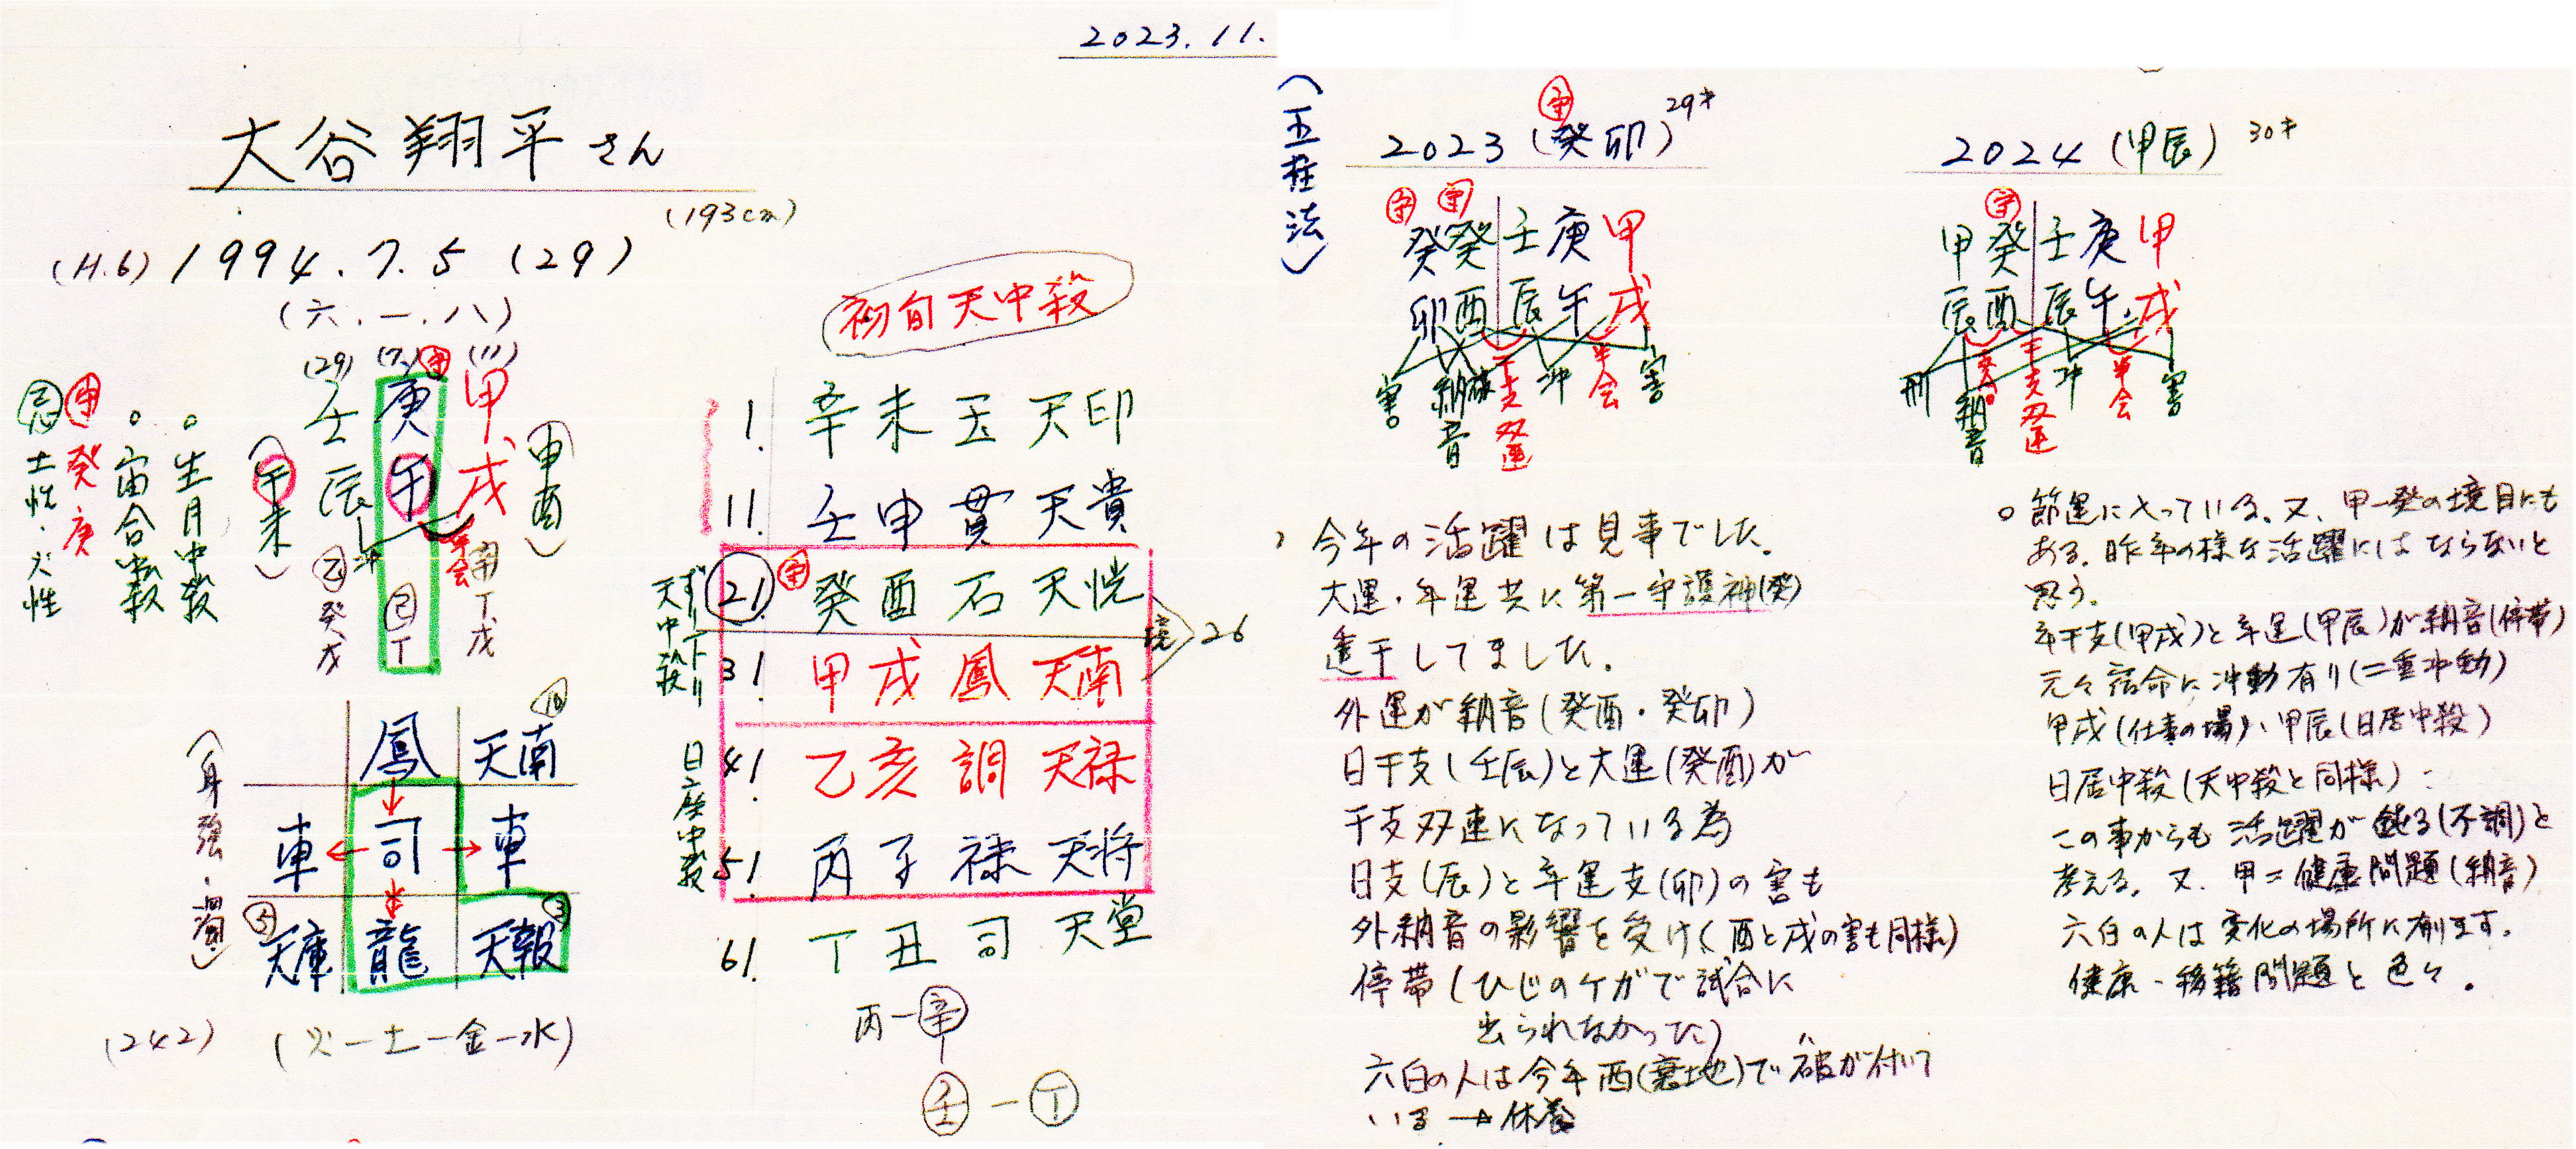 2023.11.
大谷翔平さん
(193cm)
(H.6) 1994.7.5 (29)
(六.一.八)
(29) (7) (11)
守
壬 庚 甲
辰 午 戌
(申酉)
(午未)
冲
半会
乙癸戊
己丁
辛丁戊
○生月中殺
○宙合中殺
守 癸 庚
忌 土性・火性
(身強・濁)
鳳 天南 10
車 司 車
天庫 5 龍 天報 3
(242) (火一土一金一水)
初旬天中殺
1. 辛未 玉 天印
11. 壬申 貫 天貴
21. 守 癸酉 石 天恍
31 甲戌 鳳 天南
境 26
41 乙亥 調 天禄
51 丙子 禄 天将
61. 丁丑 司 天堂
天中殺
日座中殺
丙一辛
壬 一 丁
(五柱法)
守
2023 (癸卯) 29才
守 守
癸癸壬庚甲
卯酉辰午戌
害 納音 干支双連 冲 半会 害
、今年の活躍は見事でした。
大運・年運共に第一守護神(癸)
透干してました。
外運が納音(癸酉・癸卯)
日干支(壬辰)と大運(癸酉)が
干支双連になっている為
日支(辰)と年運支(卯)の害も
外納音の影響を受け(酉と戌の害も同様)
停帯(ひじのケガで試合に
出られなかった)
六白の人は今年西(兌地)で破が付いて
いる→休養
2024 (甲辰) 30才
守
甲癸壬庚甲
辰酉辰午戌
刑 納音 干支双連 冲 半会 害
○節運に入っている。又、甲一癸の境目にも
ある。昨年の様な活躍にはならないと
思う。
年干支(甲戌)と年運(甲辰)が納音(停帯)
元々宿命に冲動有り(二重冲動)
甲戌(仕事の場)、甲辰(日居中殺)
日居中殺(天中殺と同様):
この事からも活躍が鈍る(不調)と
考える。又、甲=健康問題(納音)
六白の人は変化の場所に廻ます。
健康・移籍問題と色々。